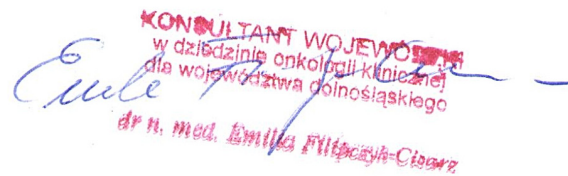 KONSULTANT WOJEWÓDZKI
w dziedzinie onkologii klinicznej
dla województwa dolnośląskiego
dr n. med. Emilia Filipczyk-Cisarż